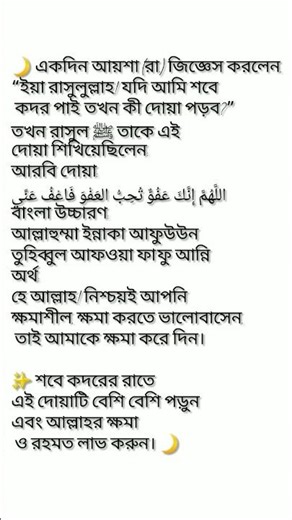 🌙 একদিন আয়শা (রা) জিজ্ঞেস করলেন
“ইয়া রাসুলুল্লাহ! যদি আমি শবে
কদর পাই তখন কী দোয়া পড়ব?”
তখন রাসুল ﷺ তাকে এই
দোয়া শিখিয়েছিলেন
আরবি দোয়া
اللَّهُمَّ إِنَّكَ عَفُوٌّ تُحِبُّ العَفْوَ فَاعْفُ عَنِّي
বাংলা উচ্চারণ
আল্লাহুম্মা ইন্নাকা আফুউউন
তুহিব্বুল আফওয়া ফাফু আন্নি
অর্থ
হে আল্লাহ! নিশ্চয়ই আপনি
ক্ষমাশীল ক্ষমা করতে ভালোবাসেন
তাই আমাকে ক্ষমা করে দিন।
✨ শবে কদরের রাতে
এই দোয়াটি বেশি বেশি পড়ুন
এবং আল্লাহর ক্ষমা
ও রহমত লাভ করুন। 🌙